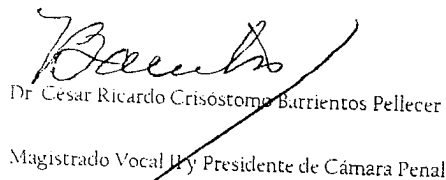 Dr. César Ricardo Crisóstomo Barrientos Pellecer
Magistrado Vocal II y Presidente de Cámara Penal